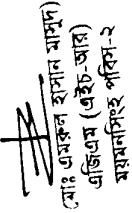 (মোঃ এমরুল হাসান মাসুদ)
এজিএম (এইচ-আর)
ময়মনসিংহ পবিস-২